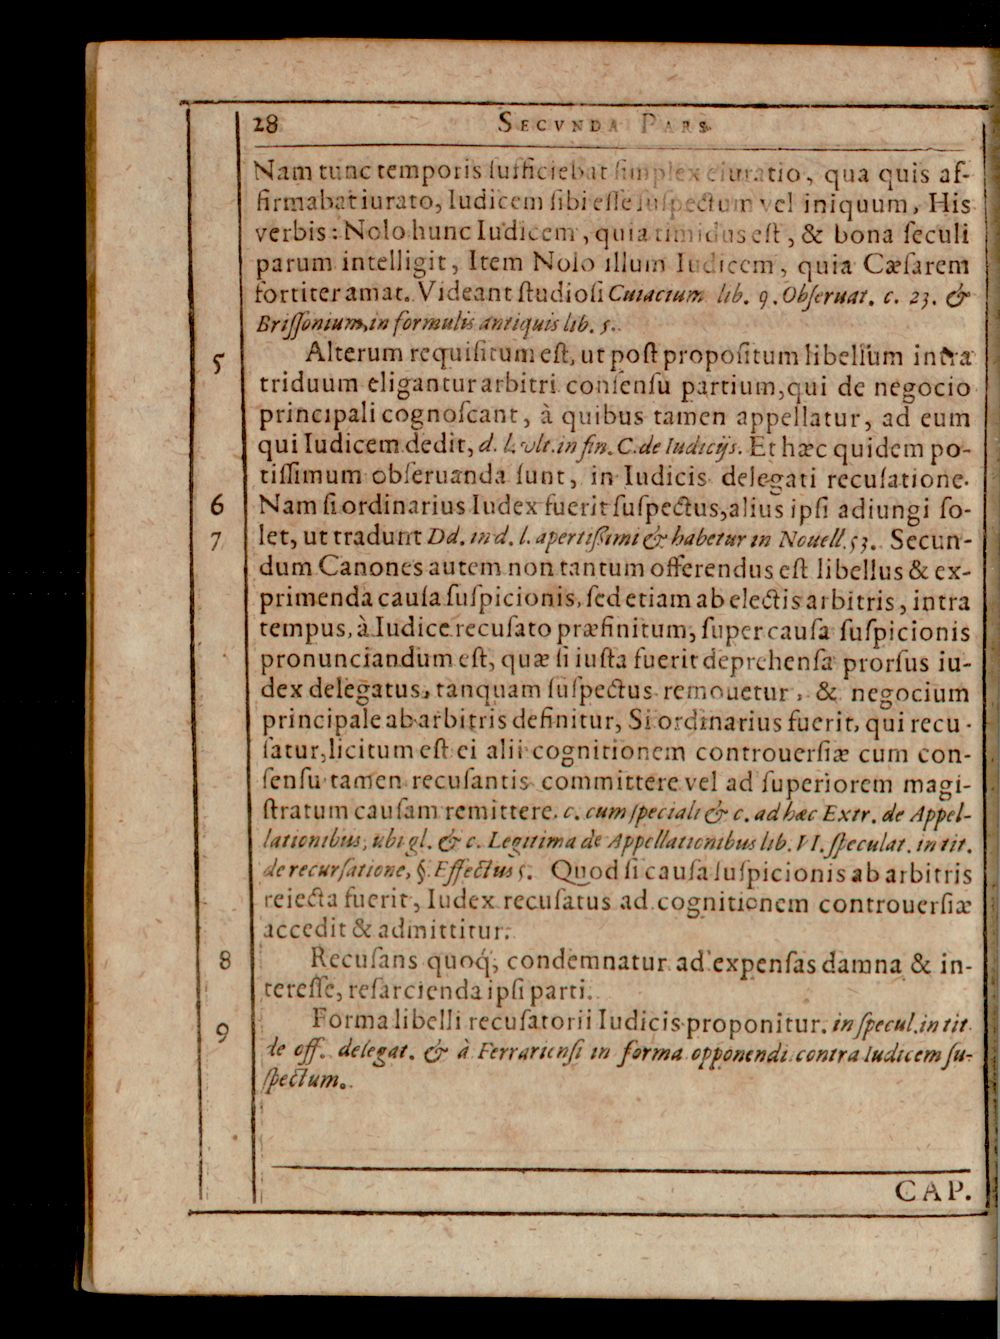 28 SECVNDA PARS.
Nam tunc temporis ſufficiebat ſimplex eiuratio, qua quis af-
firmabat iurato, Iudicem ſibi eſſe ſuſpectum vel iniquum, His
verbis: Nolo hunc Iudicem, quia timidus eſt, & bona ſeculi
parum intelligit, Item Nolo illum Iudicem, quia Cæſarem
fortiter amat. Videant ſtudioſi Cuiacium lib. 9. Obſeruat. c. 23. &
Briſſonium, in formulis antiquis lib. 5.
5 Alterum requiſitum eſt, ut poſt propoſitum libellum intra
triduum eligantur arbitri conſenſu partium, qui de negocio
principali cognoſcant, à quibus tamen appellatur, ad eum
qui Iudicem dedit, d. l. vlt. in fin. C. de Iudicijs. Et hæc quidem po-
tiſſimum obſeruanda ſunt, in Iudicis delegati recuſatione.
6 Nam ſi ordinarius Iudex fuerit ſuſpectus, alius ipſi adiungi ſo-
7 let, ut tradunt Dd. in d. l. apertißimi & habetur in Nouell. 53. Secun-
dum Canones autem non tantum offerendus eſt libellus & ex-
primenda cauſa ſuſpicionis, ſed etiam ab electis arbitris, intra
tempus, à Iudice recuſato præfinitum, ſuper cauſa ſuſpicionis
pronunciandum eſt, quæ ſi iuſta fuerit deprehenſa prorſus iu-
dex delegatus, tanquam ſuſpectus remouetur, & negocium
principale ab arbitris definitur, Si ordinarius fuerit, qui recu-
ſatur, licitum eſt ei alii cognitionem controuerſiæ cum con-
ſenſu tamen recuſantis committere vel ad ſuperiorem magi-
ſtratum cauſam remittere. c. cum ſpeciali & c. ad hæc Extr. de Appel-
lationibus, ubi gl. & c. Legitima de Appellationibus lib. VI. ſpeculat. in tit.
de recurſatione, §. Effectus 5. Quod ſi cauſa ſuſpicionis ab arbitris
reiecta fuerit, Iudex recuſatus ad cognitionem controuerſiæ
accedit & admittitur.
8 Recuſans quoq́; condemnatur ad expenſas damna & in-
tereſſe, reſarcienda ipſi parti.
9 Forma libelli recuſatorii Iudicis proponitur. in ſpecul. in tit
de off. delegat. & à Ferrarienſi in forma opponendi contra Iudicem ſu-
ſpectum.
CAP.